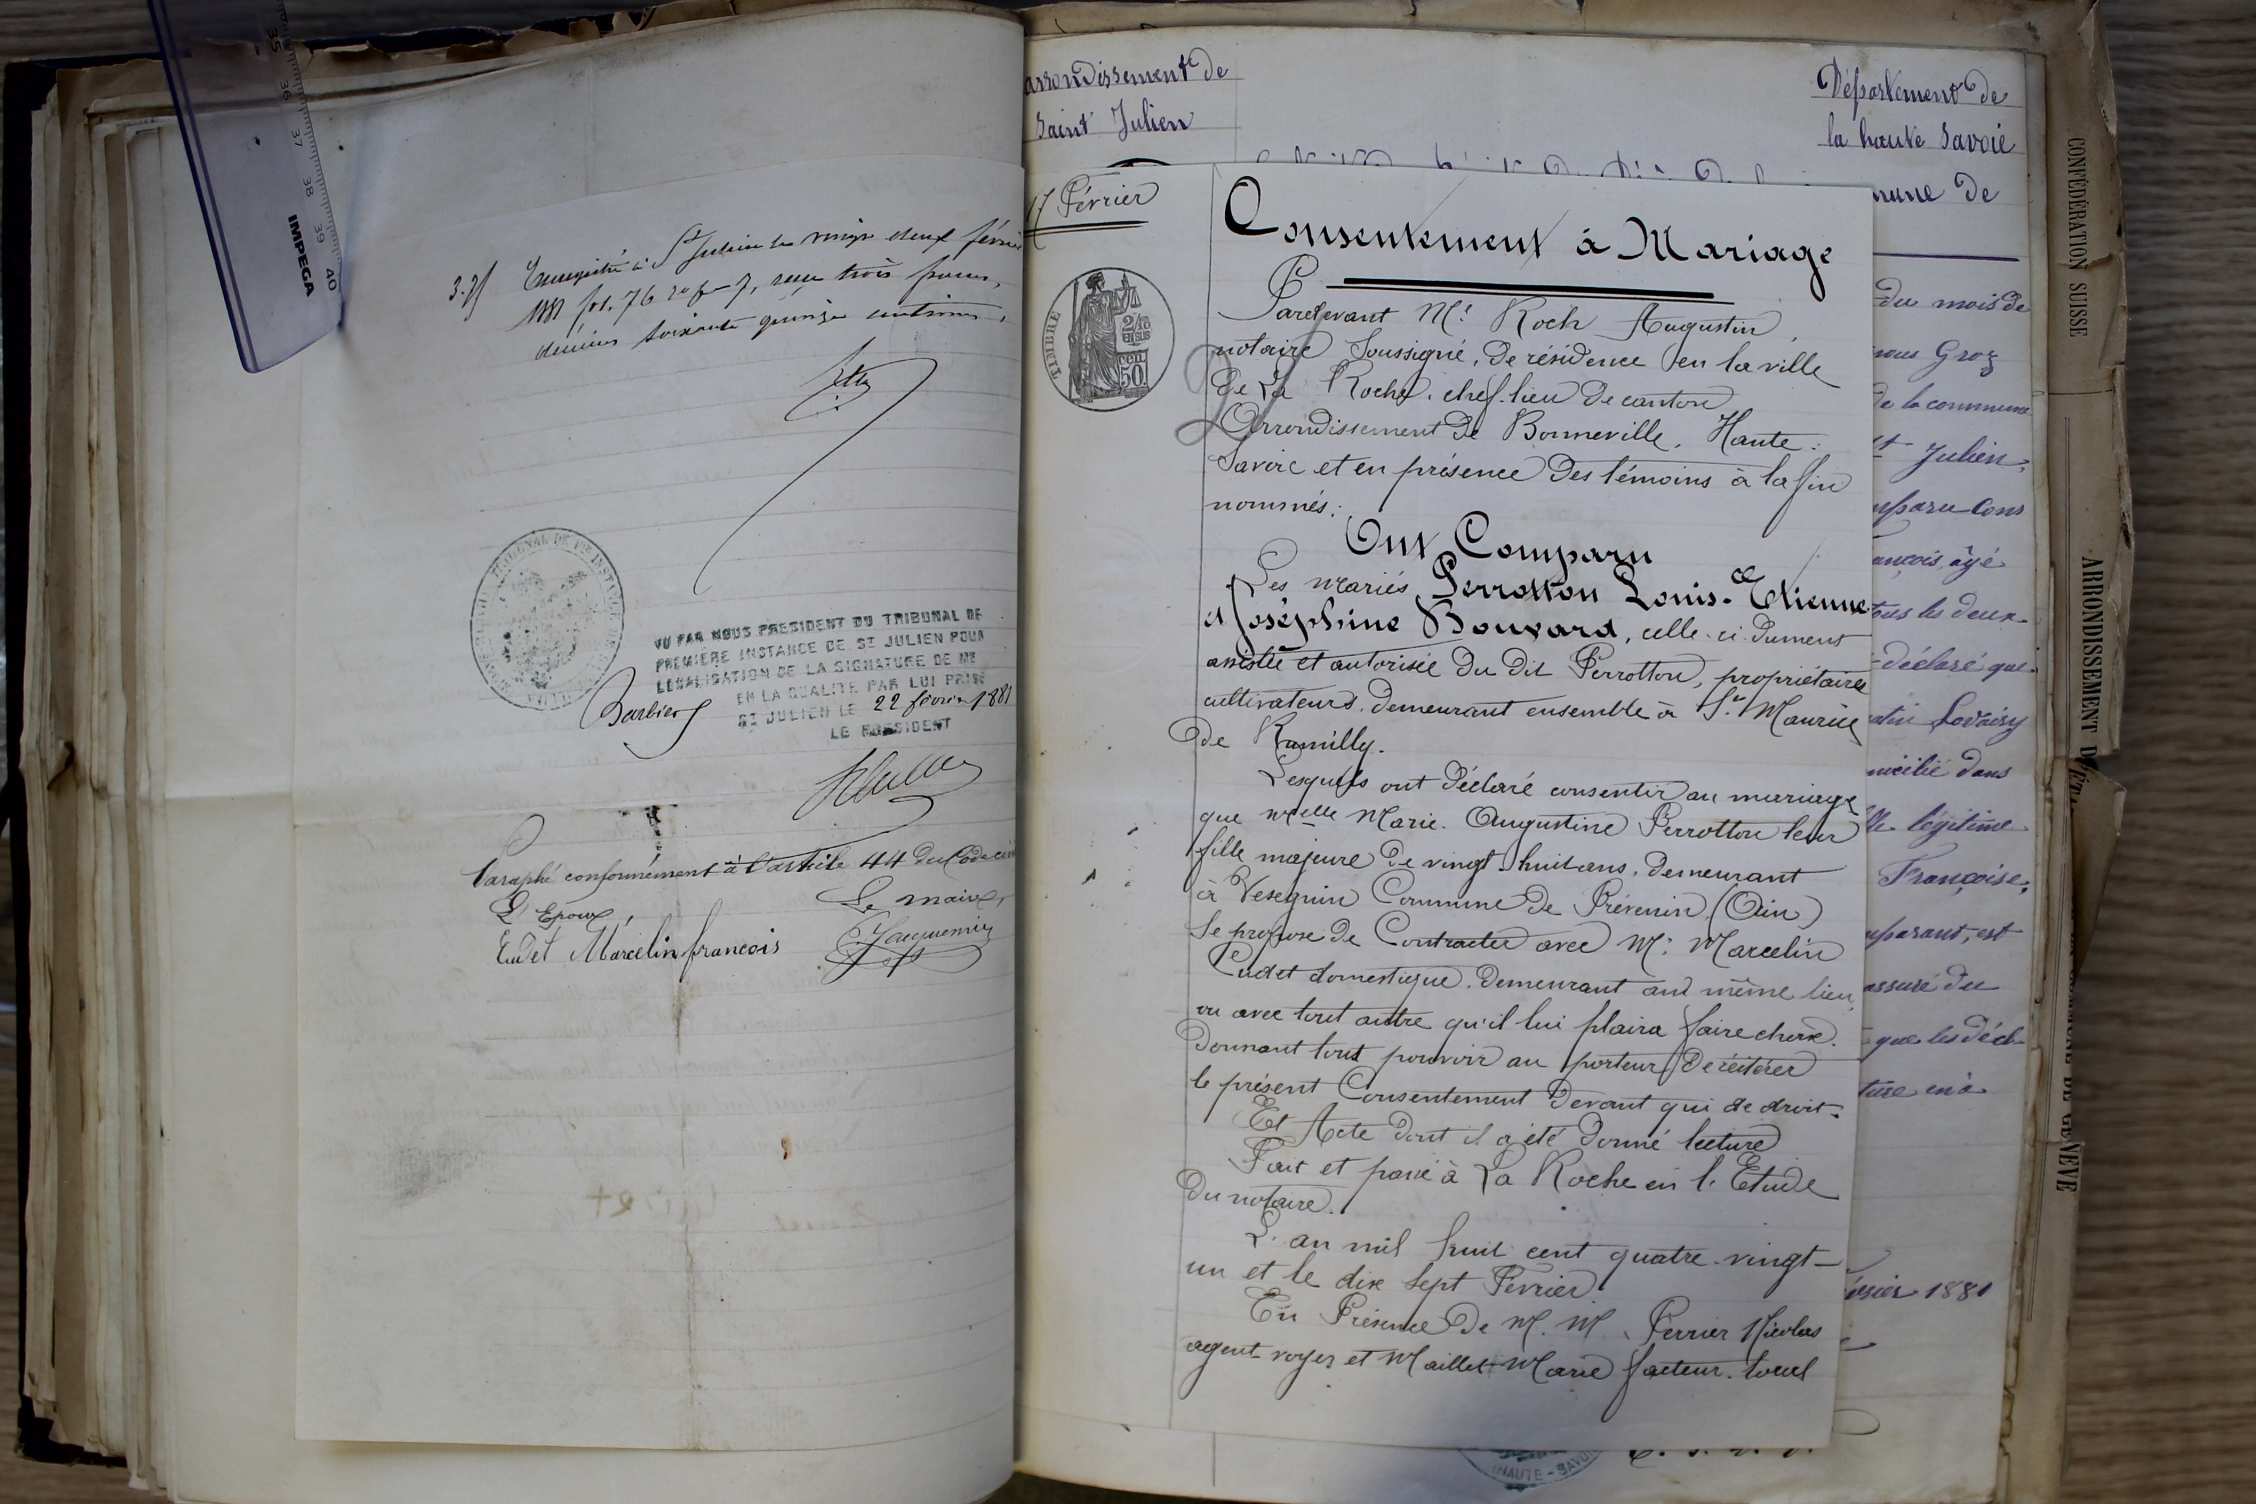 35 36 37 38 39 40
IMPEGA
3.75 Enregistré à St Julien le vingt deux février
1881 fol. 76 ro, reçu trois francs,
décimes soixante quinze centimes.
TRIBUNAL DE 1re INSTANCE
VU PAR NOUS PRESIDENT DU TRIBUNAL DE
PREMIÈRE INSTANCE DE ST JULIEN POUR
LEGALISATION DE LA SIGNATURE DE ME
Barbier EN LA QUALITE PAR LUI PRISE
ST JULIEN LE 22 février 1881
LE PRESIDENT
Paraphé conformément à l'article 44 du Code civil
L'Epoux, Le maire,
Cudet Marcelin francois Jacquemin
Arrondissement de
Saint Julien
Département de
la haute Savoie
17 Février
TIMBRE
2/10 EN SUS
CEN 50.
Consentement à Mariage
Pardevant Me Roch Augustin,
notaire Soussigné, de résidence en la ville
de La Roche, chef-lieu de canton
Arrondissement de Bonneville, Haute-
Savoie et en présence des témoins à la fin
nommés:
Ont Comparu
Les mariés Perrotton Louis-Etienne
et Joséphine Bouvard, celle-ci dument
assistée et autorisée du dit Perrotton, propriétaires
cultivateurs, demeurant ensemble à St Maurice
de Rumilly.
Lesquels ont déclaré consentir au mariage
que Melle Marie-Augustine Perrotton leur
fille majeure de vingt huit ans, demeurant
à Vesegnin Commune de Prévenin (Ain)
se propose de Contracter avec Mr Marcelin
Cudet domestique, demeurant aud même lieu,
ou avec tout autre qu'il lui plaira faire choix.
Donnant tout pouvoir au porteur de réitérer
le présent Consentement devant qui de droit.
Et Acte dont il a été donné lecture
Fait et passé à La Roche en l'Etude
du notaire.
L'an mil huit cent quatre-vingt-
un et le dix sept Février
En Présence de M.M. Perrier Nicolas
agent-voyer et Maillet Marie facteur-local
mune de
du mois de
nous Groz
de la commune
St Julien,
mparu Cons
ançois, âgé
tous les deux
déclaré que
Lovaisy
micilié dans
lle légitime
Françoise,
mparant, est
assuré du
que les décl
ture en a
évrier 1881
HAUTE-SAVOIE
CONFÉDÉRATION SUISSE
ARRONDISSEMENT D'ÉTAT
DE GENÈVE